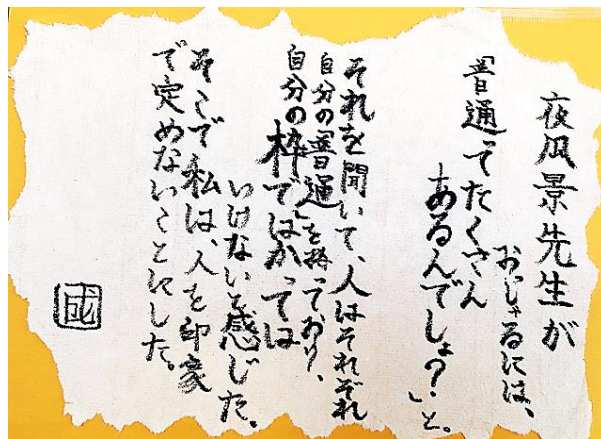 夜風景先生が
おっしゃるには、
「普通ってたくさん
あるんでしょ?」と。
それを聞いて、人はそれぞれ
自分の「普通」を持っており、
自分の枠ではかっては
いけないと感じた。
そこで私は、人を印象
で定めないことにした。